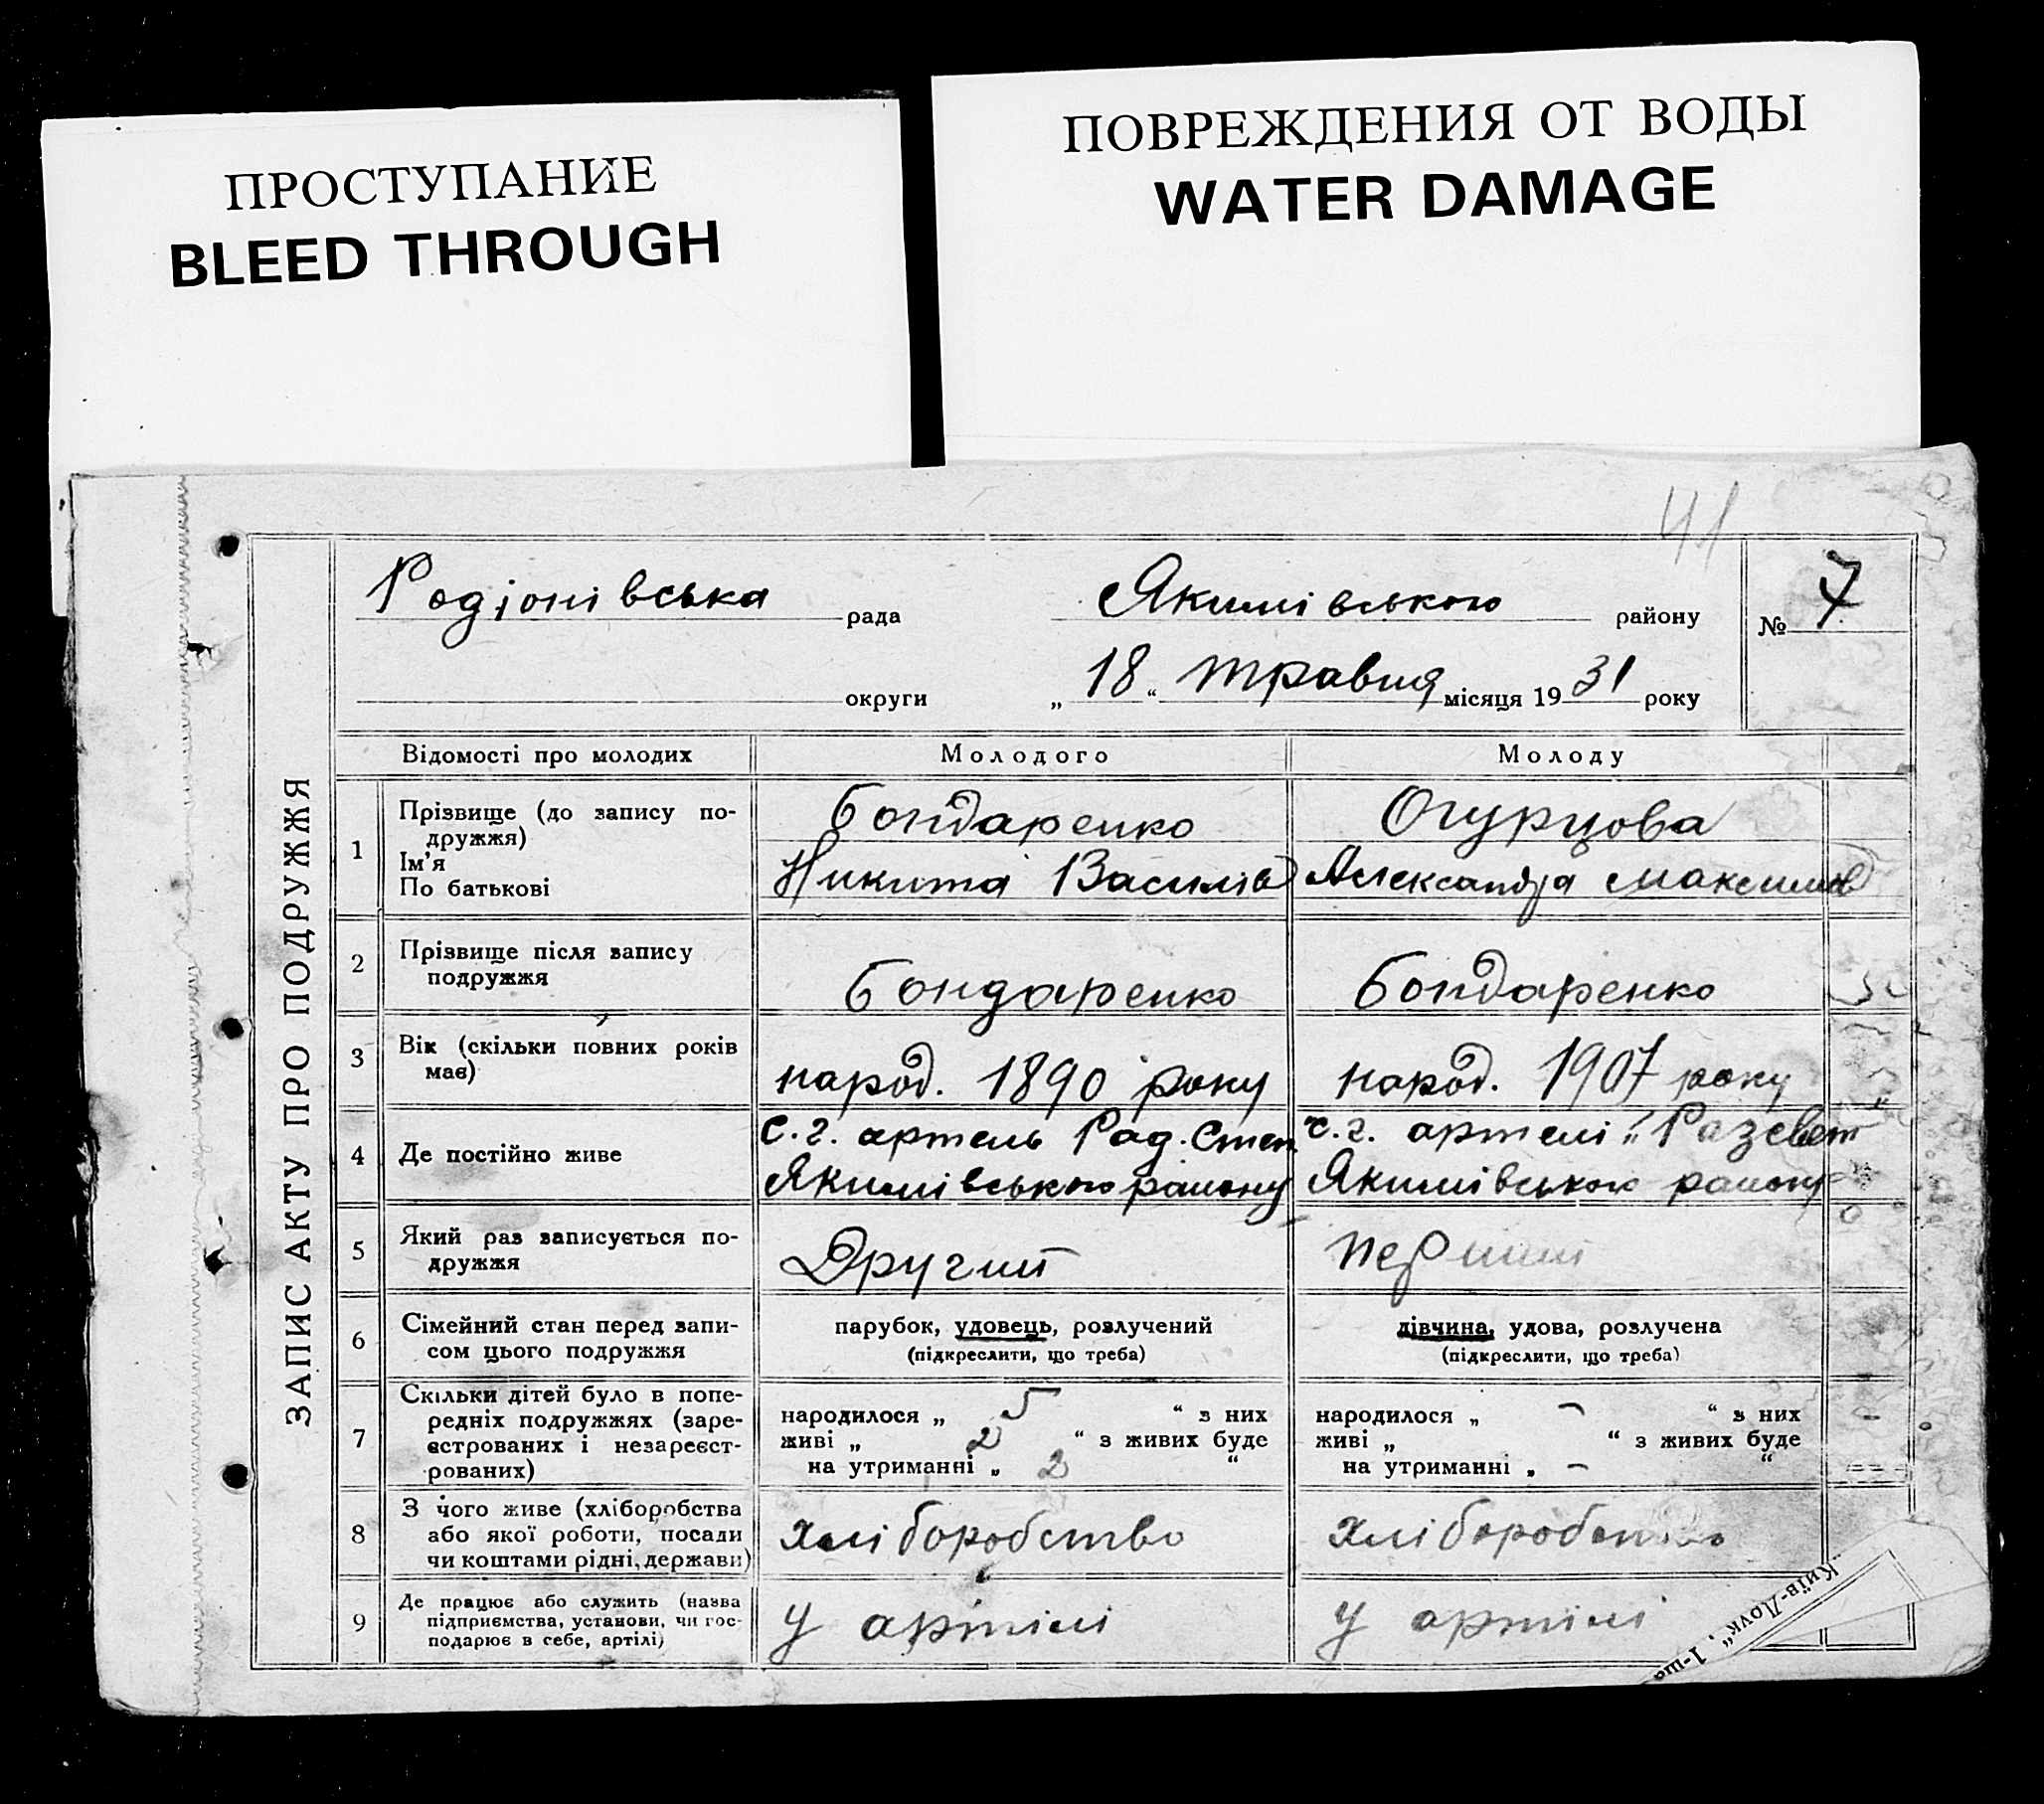 ПРОСТУПАНИЕ
BLEED THROUGH
ПОВРЕЖДЕНИЯ ОТ ВОДЫ
WATER DAMAGE
41
ЗАПИС АКТУ ПРО ПОДРУЖЖЯ
Родіонівська рада Якимівського району № 7
округи „18“ травня місяця 1931 року
Відомості про молодих Молодого Молоду
1 Прізвище (до запису по-
дружжя) Бондаренко Огурцова
Ім'я
По батькові Никита Василів Александра Максимов
2 Прізвище після запису
подружжя Бондаренко Бондаренко
3 Вік (скільки повних років
має) народ. 1890 року народ. 1907 року
4 Де постійно живе с.г. артель Рад. Степ. с.г. артелі „Разсвет“
Якимівського району Якимівського району
5 Який раз записується по-
дружжя Другий перший
6 Сімейний стан перед запи-
сом цього подружжя
парубок, удовець, розлучений
(підкреслити, що треба)
дівчина, удова, розлучена
(підкреслити, що треба)
7 Скільки дітей було в попе-
редніх подружжях (заре-
єстрованих і незареєст-
рованих)
народилося „ 5 “ з них
живі „ 2 “ з живих буде
на утриманні „ 2 “
народилося „ - “ з них
живі „ “ з живих буде
на утриманні „ - “
8 З чого живе (хліборобства
або якої роботи, посади
чи коштами рідні, держави)
хліборобство хліборобство
9 Де працює або служить (назва
підприємства, установи, чи гос-
подарює в себе, артілі)
У артілі У артілі
Київ-Друк“, 1-ша